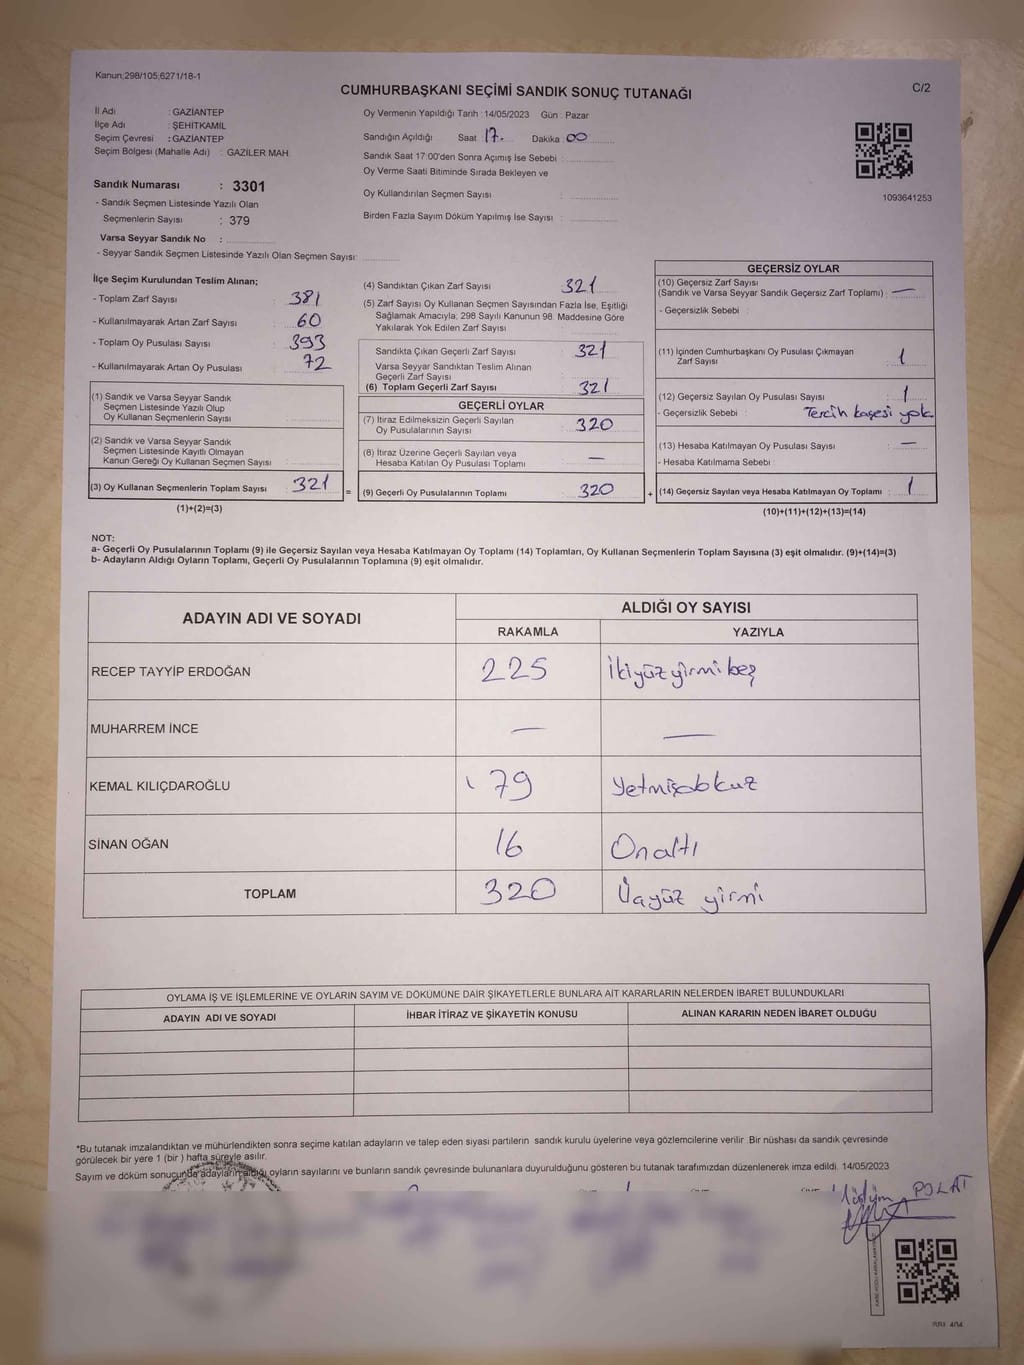 Kanun;298/105;6271/18-1
CUMHURBAŞKANI SEÇİMİ SANDIK SONUÇ TUTANAĞI
C/2
İl Adı : GAZİANTEP
İlçe Adı : ŞEHİTKAMİL
Seçim Çevresi : GAZİANTEP
Seçim Bölgesi (Mahalle Adı) : GAZİLER MAH
Sandık Numarası : 3301
- Sandık Seçmen Listesinde Yazılı Olan
Seçmenlerin Sayısı : 379
Varsa Seyyar Sandık No :
- Seyyar Sandık Seçmen Listesinde Yazılı Olan Seçmen Sayısı:
Oy Vermenin Yapıldığı Tarih : 14/05/2023 Gün : Pazar
Sandığın Açıldığı Saat 17. Dakika : 00
Sandık Saat 17:00'den Sonra Açımış İse Sebebi :
Oy Verme Saati Bitiminde Sırada Bekleyen ve
Oy Kullandırılan Seçmen Sayısı :
Birden Fazla Sayım Döküm Yapılmış İse Sayısı :
1093641253
İlçe Seçim Kurulundan Teslim Alınan;
- Toplam Zarf Sayısı : 381
- Kullanılmayarak Artan Zarf Sayısı : 60
- Toplam Oy Pusulası Sayısı : 393
- Kullanılmayarak Artan Oy Pusulası : 72
(1) Sandık ve Varsa Seyyar Sandık
Seçmen Listesinde Yazılı Olup
Oy Kullanan Seçmenlerin Sayısı :
(2) Sandık ve Varsa Seyyar Sandık
Seçmen Listesinde Kayıtlı Olmayan
Kanun Gereği Oy Kullanan Seçmen Sayısı :
(3) Oy Kullanan Seçmenlerin Toplam Sayısı : 321
(1)+(2)=(3)
=
(4) Sandıktan Çıkan Zarf Sayısı : 321
(5) Zarf Sayısı Oy Kullanan Seçmen Sayısından Fazla İse, Eşitliği
Sağlamak Amacıyla; 298 Sayılı Kanunun 98. Maddesine Göre
Yakılarak Yok Edilen Zarf Sayısı :
Sandıkta Çıkan Geçerli Zarf Sayısı : 321
Varsa Seyyar Sandıktan Teslim Alınan
Geçerli Zarf Sayısı :
(6) Toplam Geçerli Zarf Sayısı : 321
GEÇERLİ OYLAR
(7) İtiraz Edilmeksizin Geçerli Sayılan
Oy Pusulalarının Sayısı : 320
(8) İtiraz Üzerine Geçerli Sayılan veya
Hesaba Katılan Oy Pusulası Toplamı : —
(9) Geçerli Oy Pusulalarının Toplamı : 320
+
GEÇERSİZ OYLAR
(10) Geçersiz Zarf Sayısı
(Sandık ve Varsa Seyyar Sandık Geçersiz Zarf Toplamı) : —
- Geçersizlik Sebebi :
(11) İçinden Cumhurbaşkanı Oy Pusulası Çıkmayan
Zarf Sayısı : 1
(12) Geçersiz Sayılan Oy Pusulası Sayısı : 1
- Geçersizlik Sebebi : Tercih kaşesi yok
(13) Hesaba Katılmayan Oy Pusulası Sayısı : —
- Hesaba Katılmama Sebebi :
(14) Geçersiz Sayılan veya Hesaba Katılmayan Oy Toplamı : 1
(10)+(11)+(12)+(13)=(14)
NOT:
a- Geçerli Oy Pusulalarının Toplamı (9) ile Geçersiz Sayılan veya Hesaba Katılmayan Oy Toplamı (14) Toplamları, Oy Kullanan Seçmenlerin Toplam Sayısına (3) eşit olmalıdır. (9)+(14)=(3)
b- Adayların Aldığı Oyların Toplamı, Geçerli Oy Pusulalarının Toplamına (9) eşit olmalıdır.
ADAYIN ADI VE SOYADI ALDIĞI OY SAYISI
RAKAMLA YAZIYLA
RECEP TAYYİP ERDOĞAN 225 İkiyüzyirmibeş
MUHARREM İNCE — —
KEMAL KILIÇDAROĞLU 79 Yetmişdokuz
SİNAN OĞAN 16 Onaltı
TOPLAM 320 Üçyüz yirmi
OYLAMA İŞ VE İŞLEMLERİNE VE OYLARIN SAYIM VE DÖKÜMÜNE DAİR ŞİKAYETLERLE BUNLARA AİT KARARLARIN NELERDEN İBARET BULUNDUKLARI
ADAYIN ADI VE SOYADI İHBAR İTİRAZ VE ŞİKAYETİN KONUSU ALINAN KARARIN NEDEN İBARET OLDUĞU
*Bu tutanak imzalandıktan ve mühürlendikten sonra seçime katılan adayların ve talep eden siyasi partilerin sandık kurulu üyelerine veya gözlemcilerine verilir. Bir nüshası da sandık çevresinde
görülecek bir yere 1 (bir ) hafta süreyle asılır.
Sayım ve döküm sonucunda adayların aldığı oyların sayılarını ve bunların sandık çevresinde bulunanlara duyurulduğunu gösteren bu tutanak tarafımızdan düzenlenerek imza edildi. 14/05/2023
POLAT